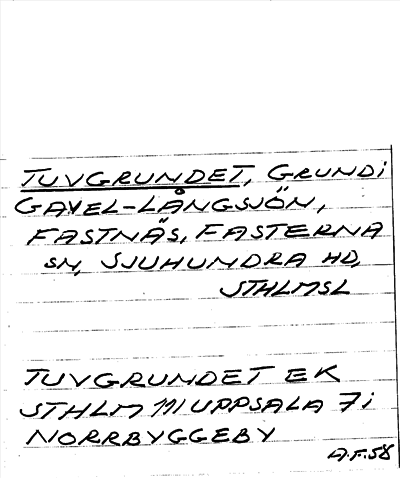 TUVGRUNDET, GRUND i
GAVEL-LÅNGSJÖN,
FASTNÄS, FASTERNA
SN, SJUHUNDRA HD,
STHLMSL
TUVGRUNDET EK
STHLM 111 UPPSALA 7 i
NORRBYGGEBY
A.F. 58